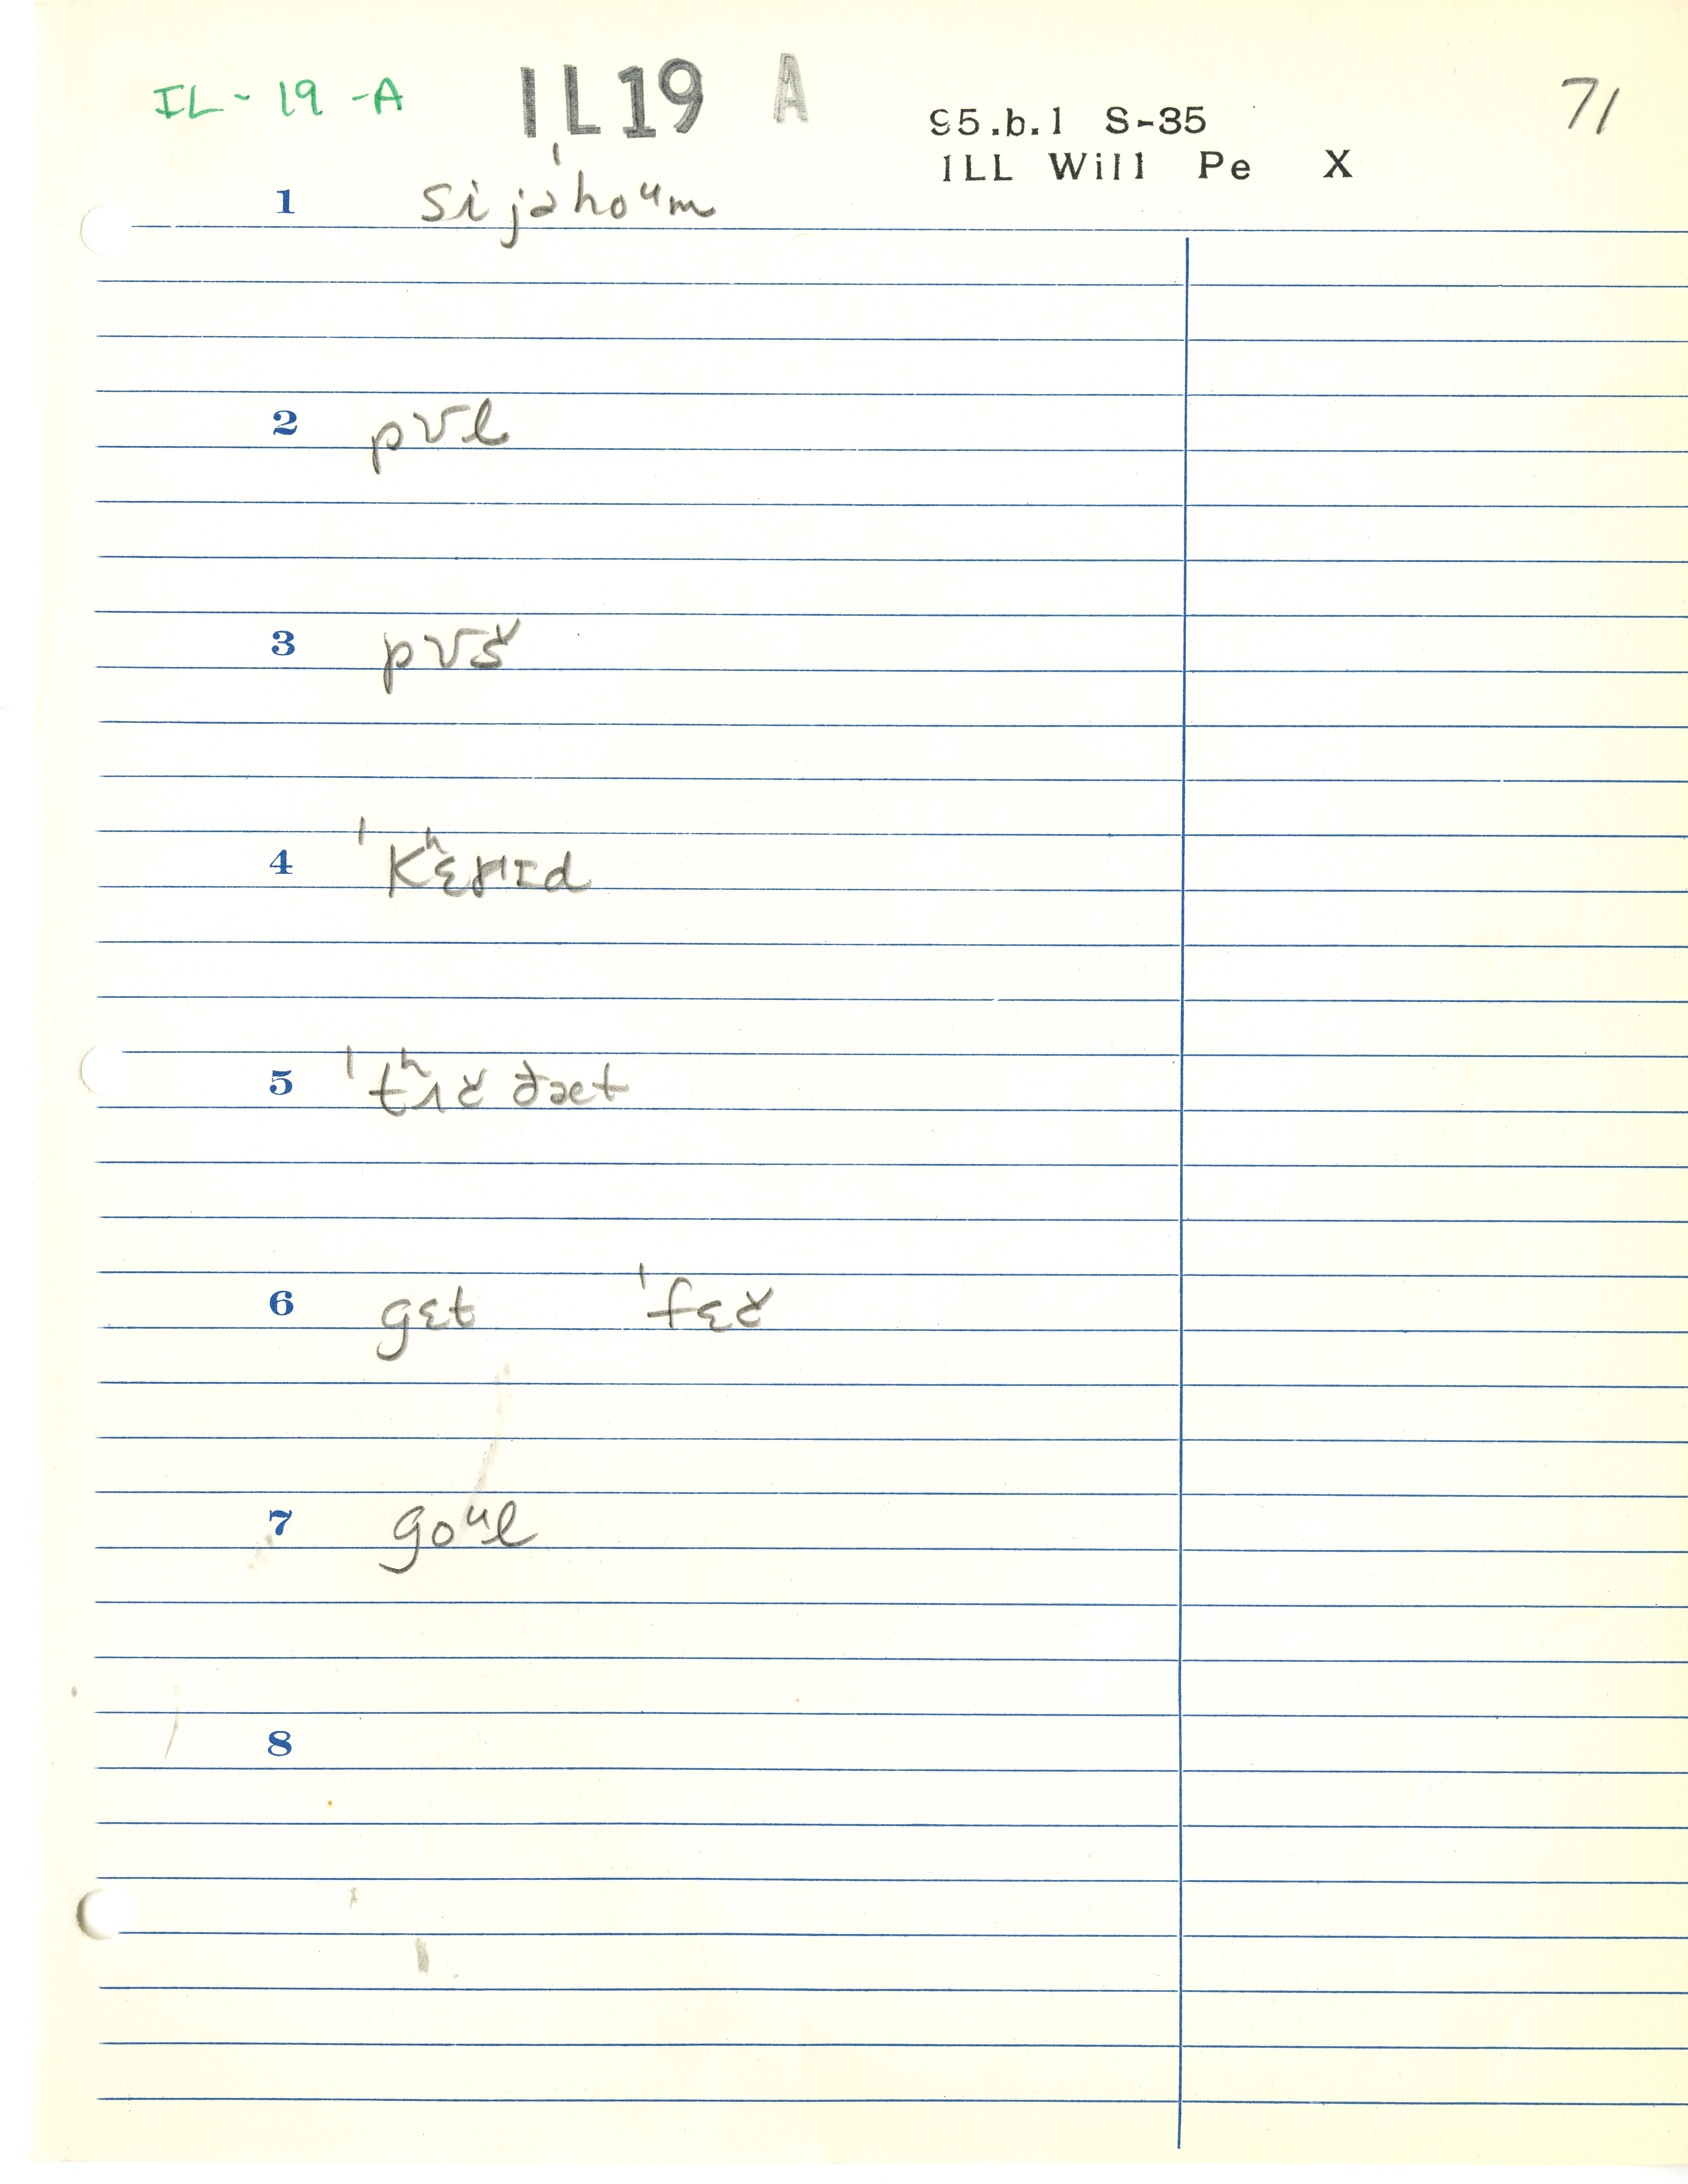 IL-19-A IL19 A 71
95.b.1 S-35
ILL Will Pe X
1 sijəˈhoᵘm
2 pʊl
3 pʊš
4 ˈkʰɛɹɪd
5 ˈtʰɚ ðæt
6 gɛt ˈfɛɚ
7 goᵘl
8